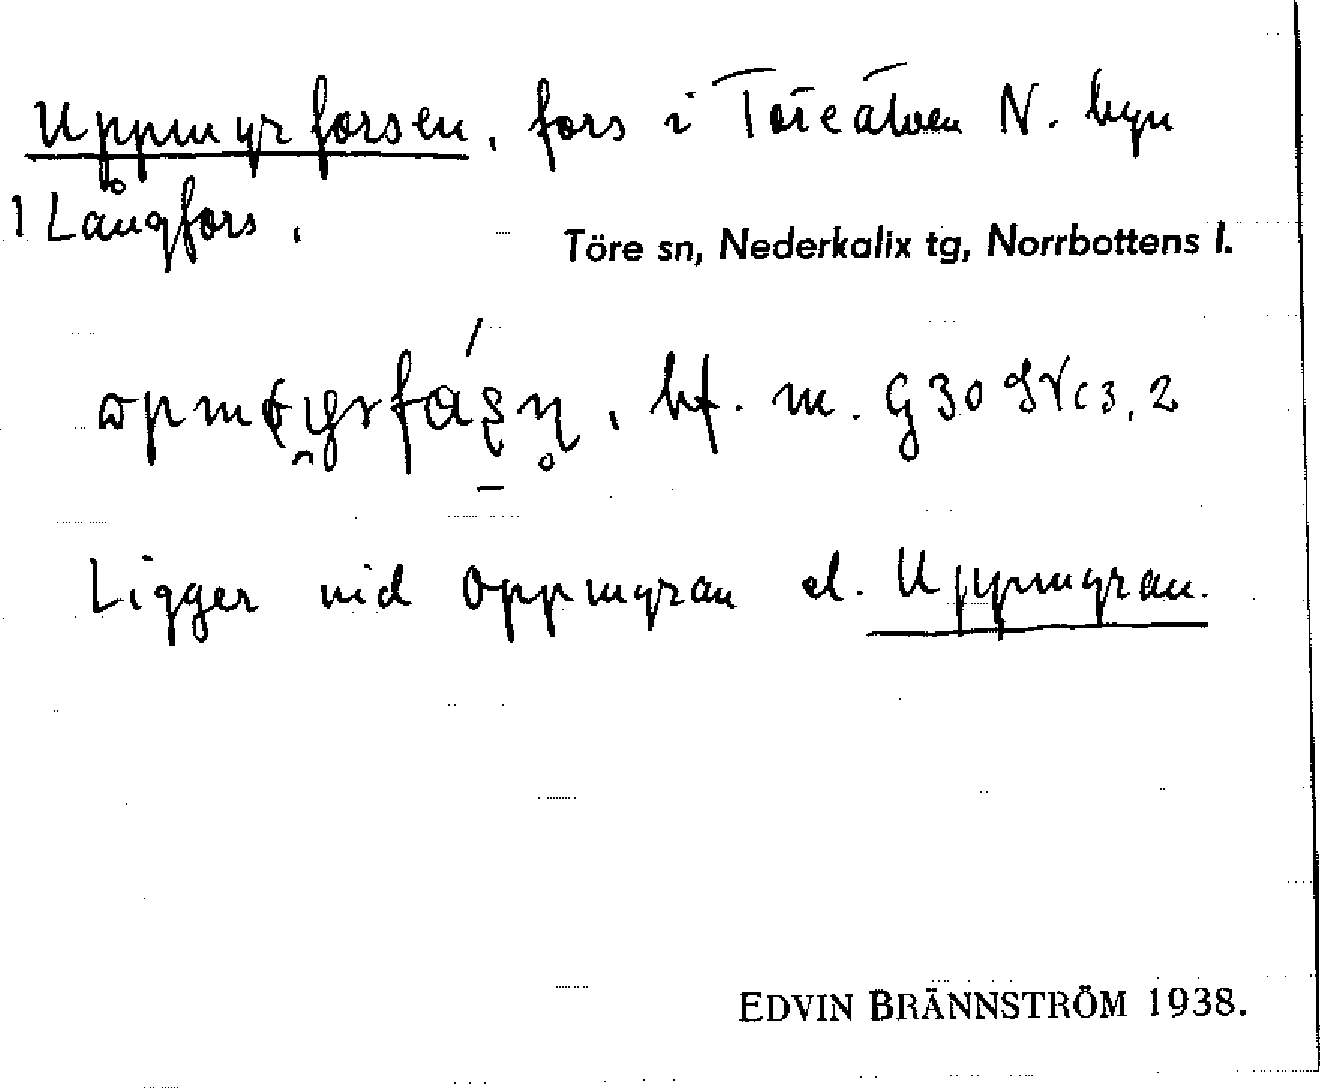 Uppmyrforsen, fors i Töreälven N. byn
1 Långfors.
Töre sn, Nederkalix tg, Norrbottens l.
bf. m.
Ligger vid Oppmyran el. Uppmyran.
EDVIN BRÄNNSTRÖM 1938.